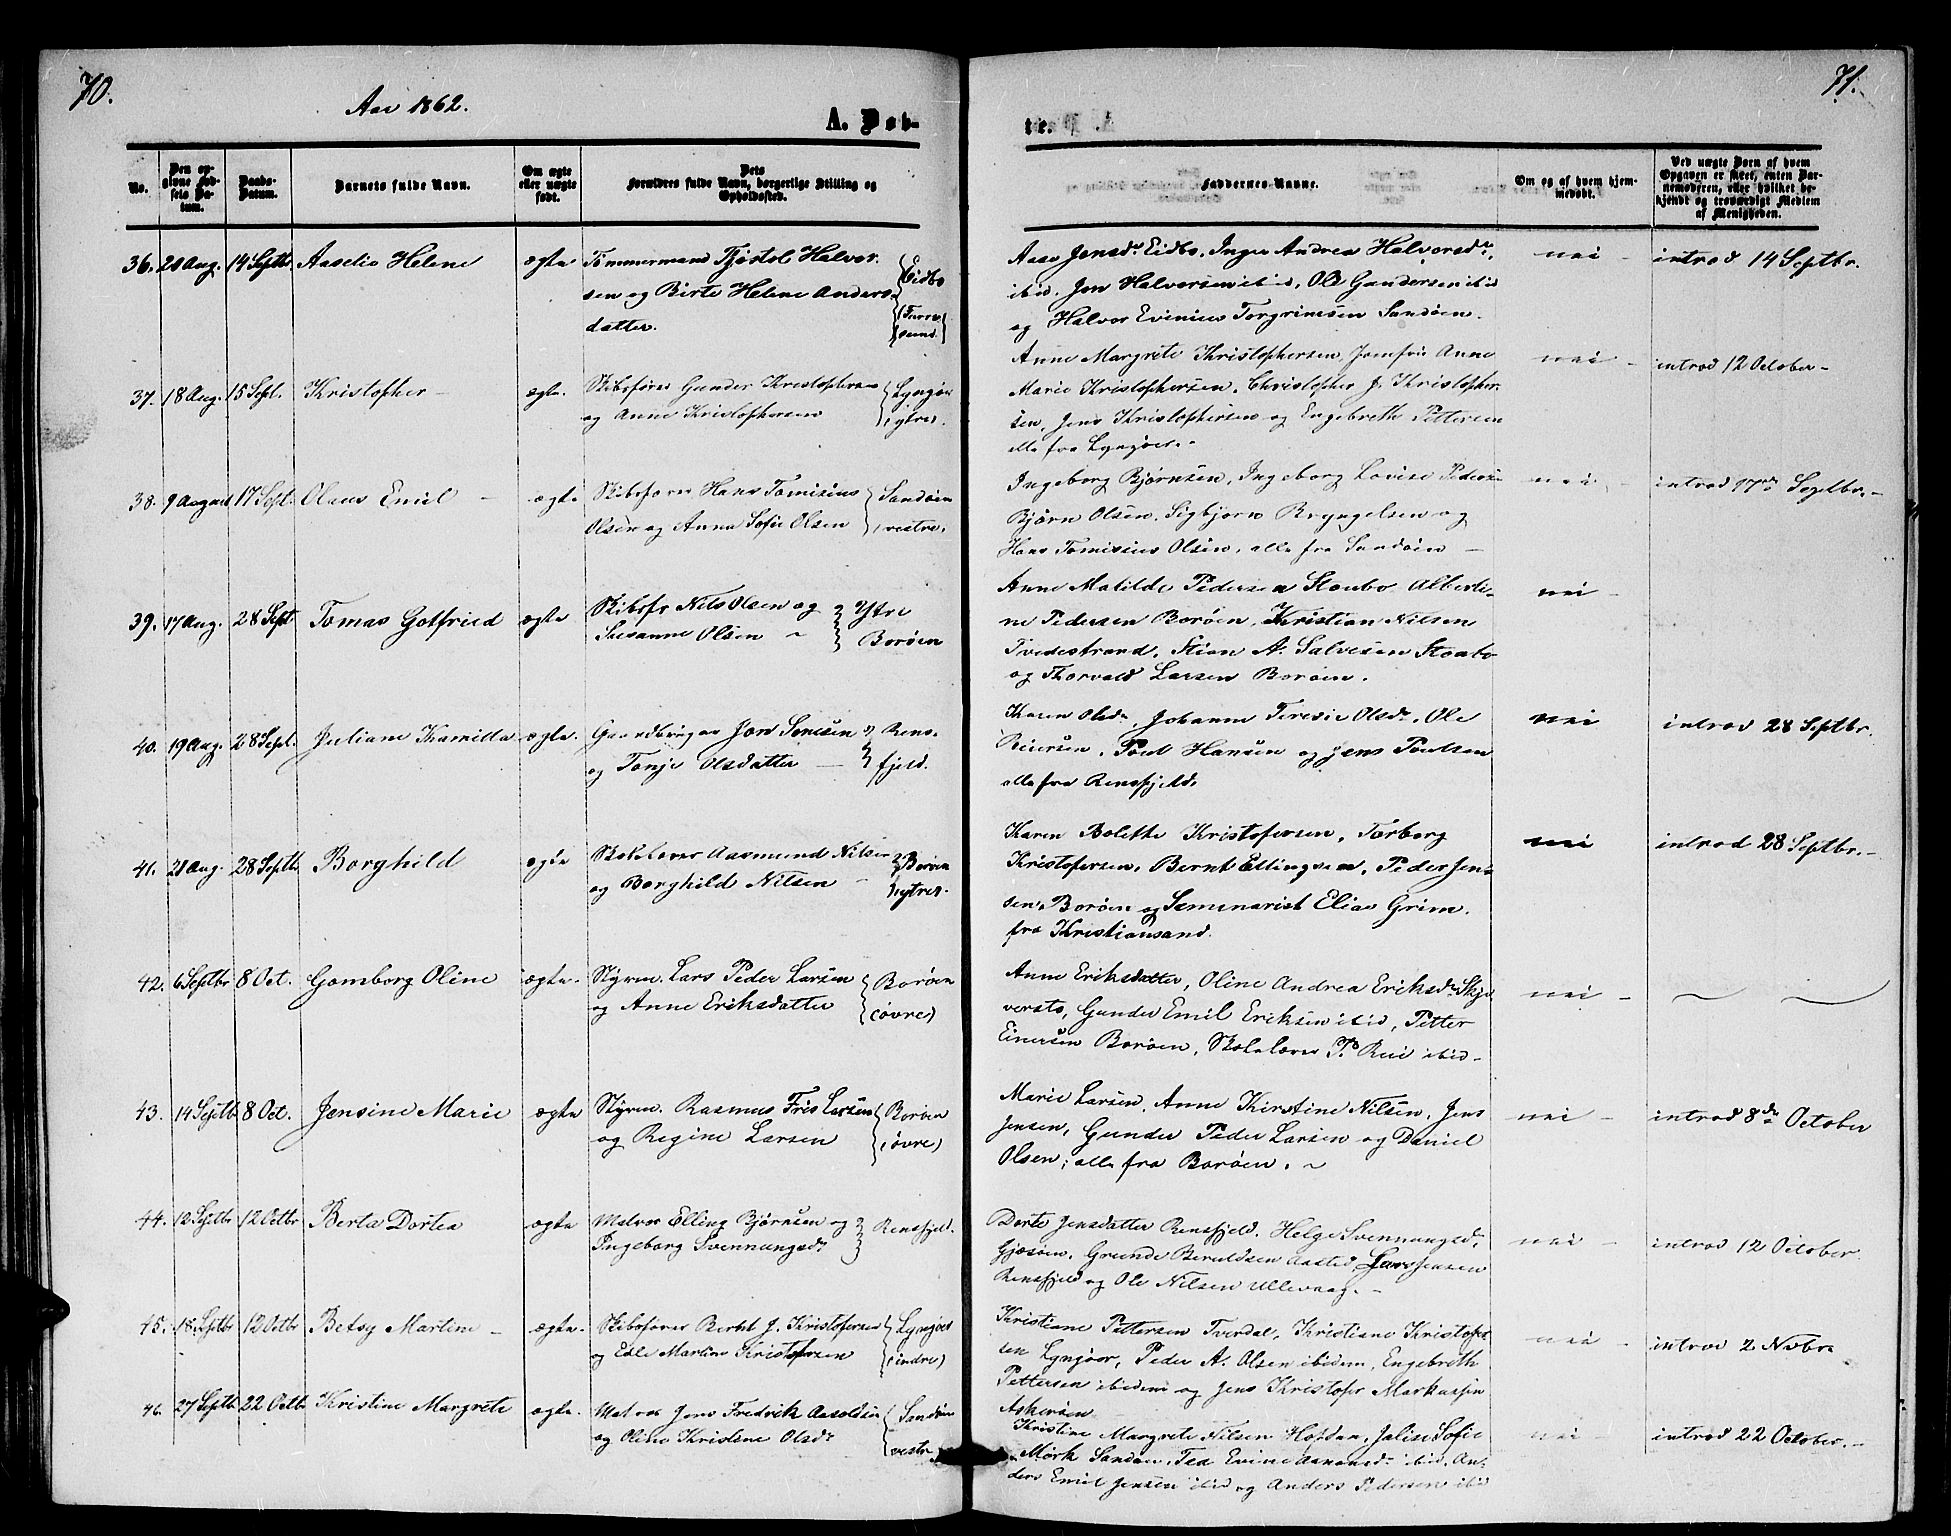 70.
Aar 1862.
A. Døb-
No.
Den opgivne Fødsels Datum.
Daabs-Datum.
Barnets fulde Navn.
Om ægte eller uægte født.
Dets Forældres fulde Navn, borgerlige Stilling og Opholdssted.
36. 20 Aug. 14 Septb. Aaselie Helene ægte Tømmermand Tjøstol Halvor-
sen og Birte Helene Anders-
datter.
Eidbo
37. 18 Aug. 15 Sept. Kristopher ægte. Skibsfører Gunder Kristophersen
og Anne Kristophersen
Lyngøer
(ytre).
38. 9 August 17 Sept. Olaus Emil ægte Skibsfører Hans Tomisius
Olsen og Anna Sofie Olsen
Sandøen
(vestre)
39. 17 Aug. 28 Sept Tomas Gotfried ægte Skibsfr Nils Olsen og
Susanne Olsen
Ytre
Borøen
40. 19 Aug. 28 Sept. Juliane Kamilla ægte. Gaardbruger Jon Jensen
og Tonje Olsdatter
Rens-
fjeld.
41. 21 Aug. 28 Septb. Borghild ægte Skolelærer Aasmund Nilsen
og Borghild Nilsen
Borøen
(ytre).
42. 6 Septbr 8 Oct. Gomborg Oline ægte. Styrm. Lars Peder Larsen
og Anne Eriksdatter
Borøen
(øvre)
43. 14 Septb. 8 Oct. Jensine Marie ægte Styrm. Rasmus Friis Larsen
og Regine Larsen
Borøen
(øvre)
44. 12 Septbr 12 Octbr Berta Dortea ægte Matros Elling Bjørnsen og
Ingeborg Svennungsdr
Rensfjeld.
45. 18 Septbr 12 Octbr Betsy Martine ægte. Skibsfører Bernt J. Kristofersen
og Edle Martine Kristofersen
Lyngøer
(indre)
46. 27 Septb 22 Octb Kristine Margrete ægte. Matros Jens Fredrik Aasoldsen
og Oline Kristine Olsdr
Sandøen
vestre
71.
te.
Faddernes Navne.
Om og af hvem hjemmedøbt.
Ved uægte Børn af hvem Opgaven er skeet, enten Barnemoderen, eller hvilket bekjendt og troværdigt Medlem af Menigheden.
Aase Jensdr Eidbo, Inger Andrea Halvorsdr,
ibid. Jon Halvorsen ibid, Ole Gundersen ibid
og Halvor Evinius Torgrimsen Sandøen.
nei
introd 14 Septbr.
Anne Margrete Kristophersen, Jomfru Anne
Marie Kristophersen, Christopher J. Kristopher-
sen, Jens Kristophersen og Engebreth Pettersen
alle fra Lyngøer.
nei
introd 12 October
Ingeborg Bjørnsen, Ingeborg Lovise Pedersen
Bjørn Olsen, Sigbjørn Bryngelsen og
Hans Tomisius Olsen, alle fra Sandøen
nei
introd 17de Septbr.
Anne Matilde Pedersen Staubo Alberti-
ne Pedersen Borøen, Kristian Nilsen
Tvedestrand, Stian A. Salvesen Staubo
og Thorvald Larsen Borøen.
nei
Karen Olsdr, Johanne Teresie Olsdr, Ole
Reiersen, Poul Hansen og Jens Poulsen
alle fra Rensfjeld.
nei
introd 28 Septbr.
Karen Bolette Kristofersen, Torborg
Kristofersen, Bernt Ellingsen, Peder Jen-
sen, Borøen og Seminarist Elias Grim.
fra Kristiansand.
nei
introd 28 Septbr.
Anne Eriksdatter, Oline Andrea Eriksdr Skje-
versto, Gunder Emil Eriksen ibid, Petter
Einersen Borøen, Skolelærer P. Rui ibid
nei
Marie Larsen, Anne Kirstine Nilsen, Jens
Jensen, Gunder Peder Larsen og Daniel
Olsen; alle fra Borøen.
nei
introd 8de October
Dorte Jensdatter Rensfjeld, Helge Svennungsdr
Gjæsøen, Grunde Beruldsen Aasted, Lars Jensen
Rensfjeld og Ole Nilsen Ullevaag.
nei
introd 12 October
Kristiane Pettersen Tverdal, Kristiane Kristofer-
sen Lyngøer, Peder A. Olsen ibidem, Engebreth
Pettersen ibidem og Jens Kristofer Markussen
Askerøen
nei
introd 2 Nvbr.
Kristine Margrete Nilsen Hofdan, Jalise Sofie
Mørk Sandøen, Ted Evine Aanonsdr ibid, An-
ders Emil Jensen ibid og Anders Pedersen ibid
nei
introd 22 October.